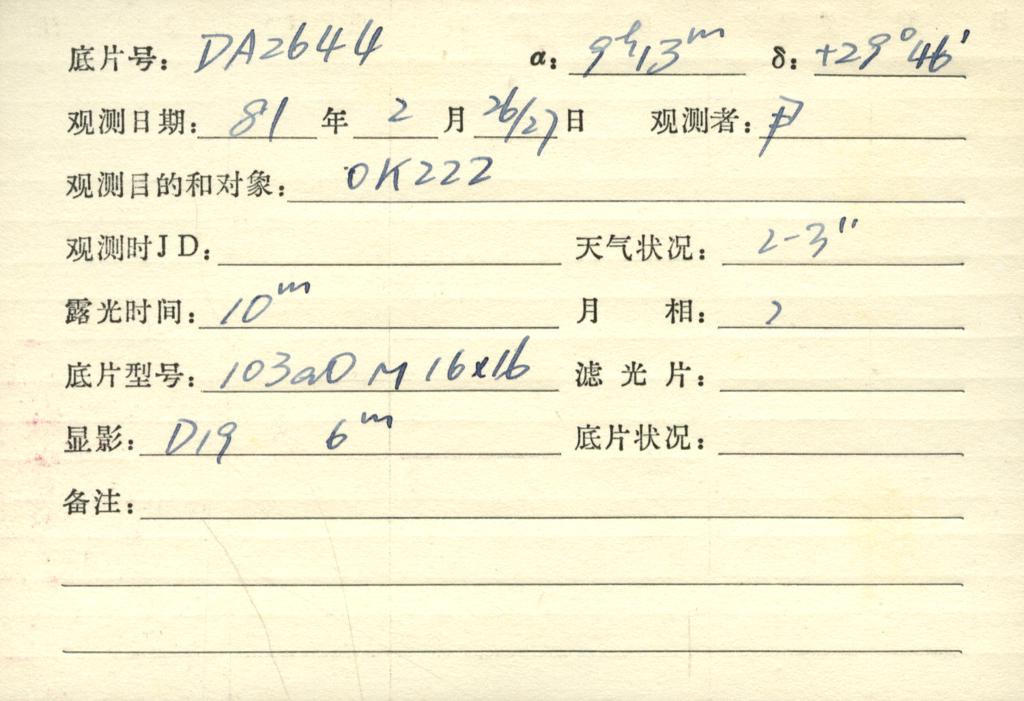 底片号: DA2644 α: 9h13m δ: +29°46'
观测日期: 81 年 2 月 26/27 日 观测者:
观测目的和对象: OK222
观测时JD:
天气状况: 2-3"
露光时间: 10m 月 相:
底片型号: 103aO M 16x16 滤光片:
显影: D19 6m 底片状况:
备注: